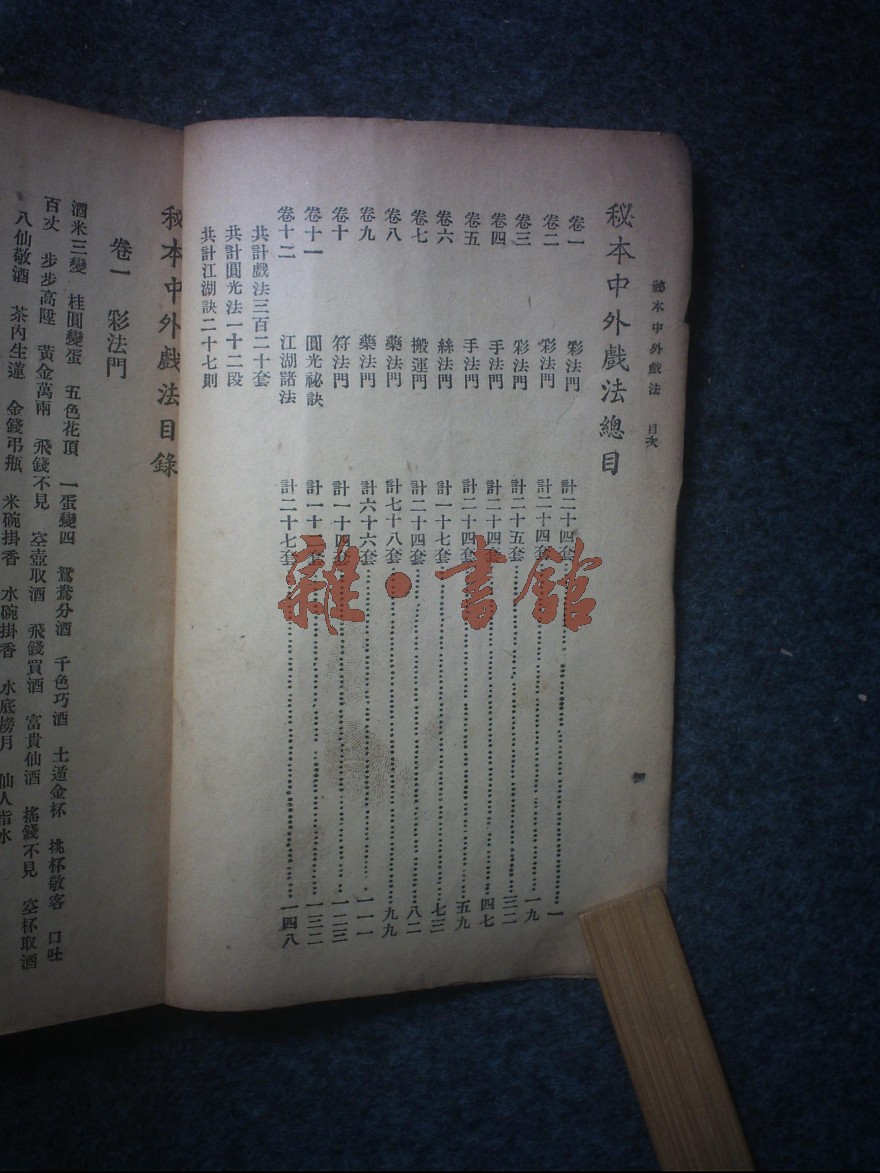 祕本中外戲法 目次
秘本中外戲法總目
卷一 彩法門 計二十四套 一
卷二 彩法門 計二十四套 一九
卷三 彩法門 計二十五套 三二
卷四 手法門 計二十四套 四七
卷五 手法門 計二十四套 五九
卷六 絲法門 計一十七套 七三
卷七 搬運門 計二十四套 八二
卷八 藥法門 計七十八套 九九
卷九 藥法門 計六十六套 一一一
卷十 符法門 計一十四套 一二三
卷十一 圓光祕訣 計一十二套 一三二
卷十二 江湖諸法 計二十七套 一四八
共計戲法三百二十套
共計圓光法一十二段
共計江湖訣二十七則
秘本中外戲法目錄
卷一 彩法門
酒米三變 桂圓變蛋 五色花頂 一蛋變四 鴛鴦分酒 千色巧酒 土遁金杯 挑杯敬客 口吐
百丈 步步高陞 黃金萬兩 飛錢不見 空壺取酒 飛錢買酒 富貴仙酒 搖錢不見 空杯取酒
八仙敬酒 茶內生蓮 金錢弔瓶 米碗掛香 水碗掛香 水底撈月 仙人指水
雜·書館